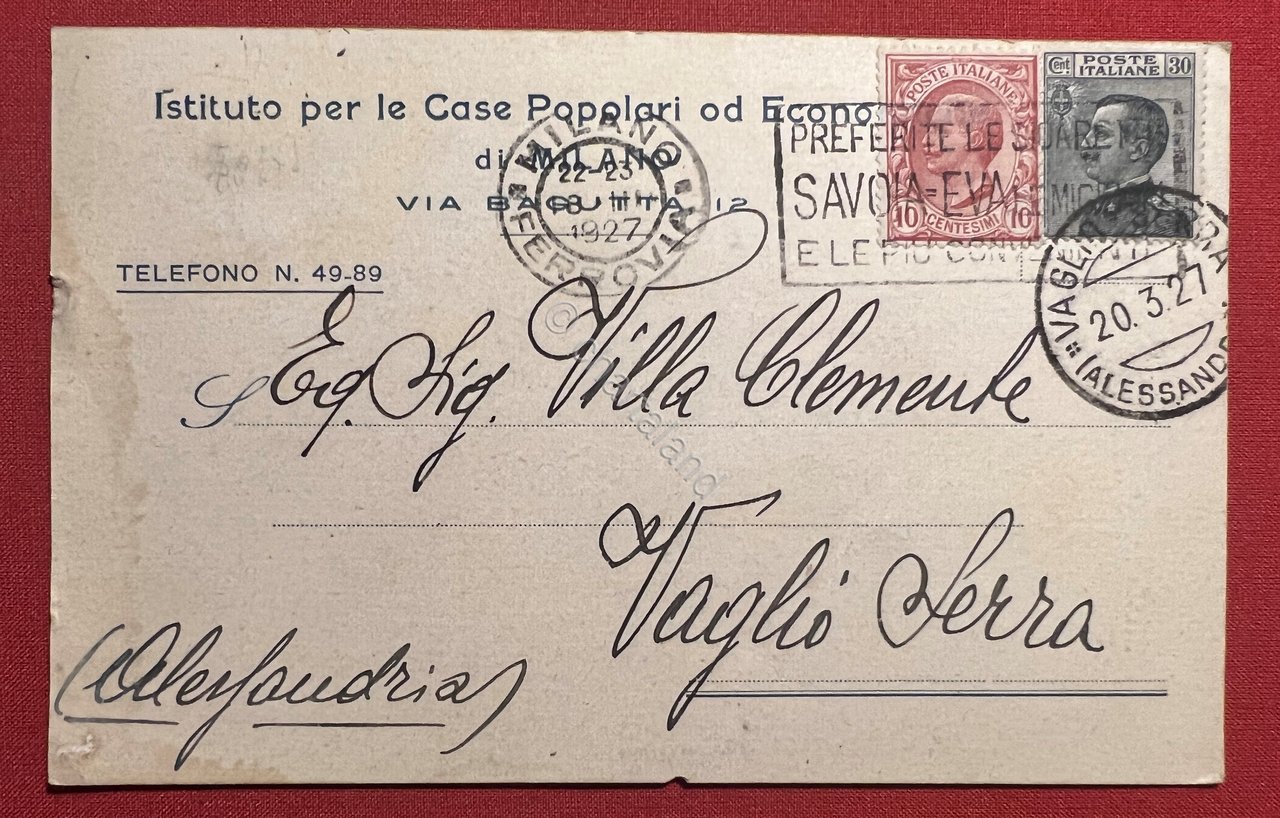 Istituto per le Case Popolari od Econo
di MILANO
VIA BAGUTTA, 12
TELEFONO N. 49-89
POSTE ITALIANE
10 CENTESIMI 10
Cent POSTE ITALIANE 30
MILANO
22-23
18 III
1927
FERROVIA
PREFERITE LE
SAVOIA=EVA
E LE PIÙ CONVENIENTI
VAGLIO SERRA
20.3.27
(ALESSAND
Eg. Sig. Villa Clemente
Vaglio Serra
(Alessandria)
© Cartaland